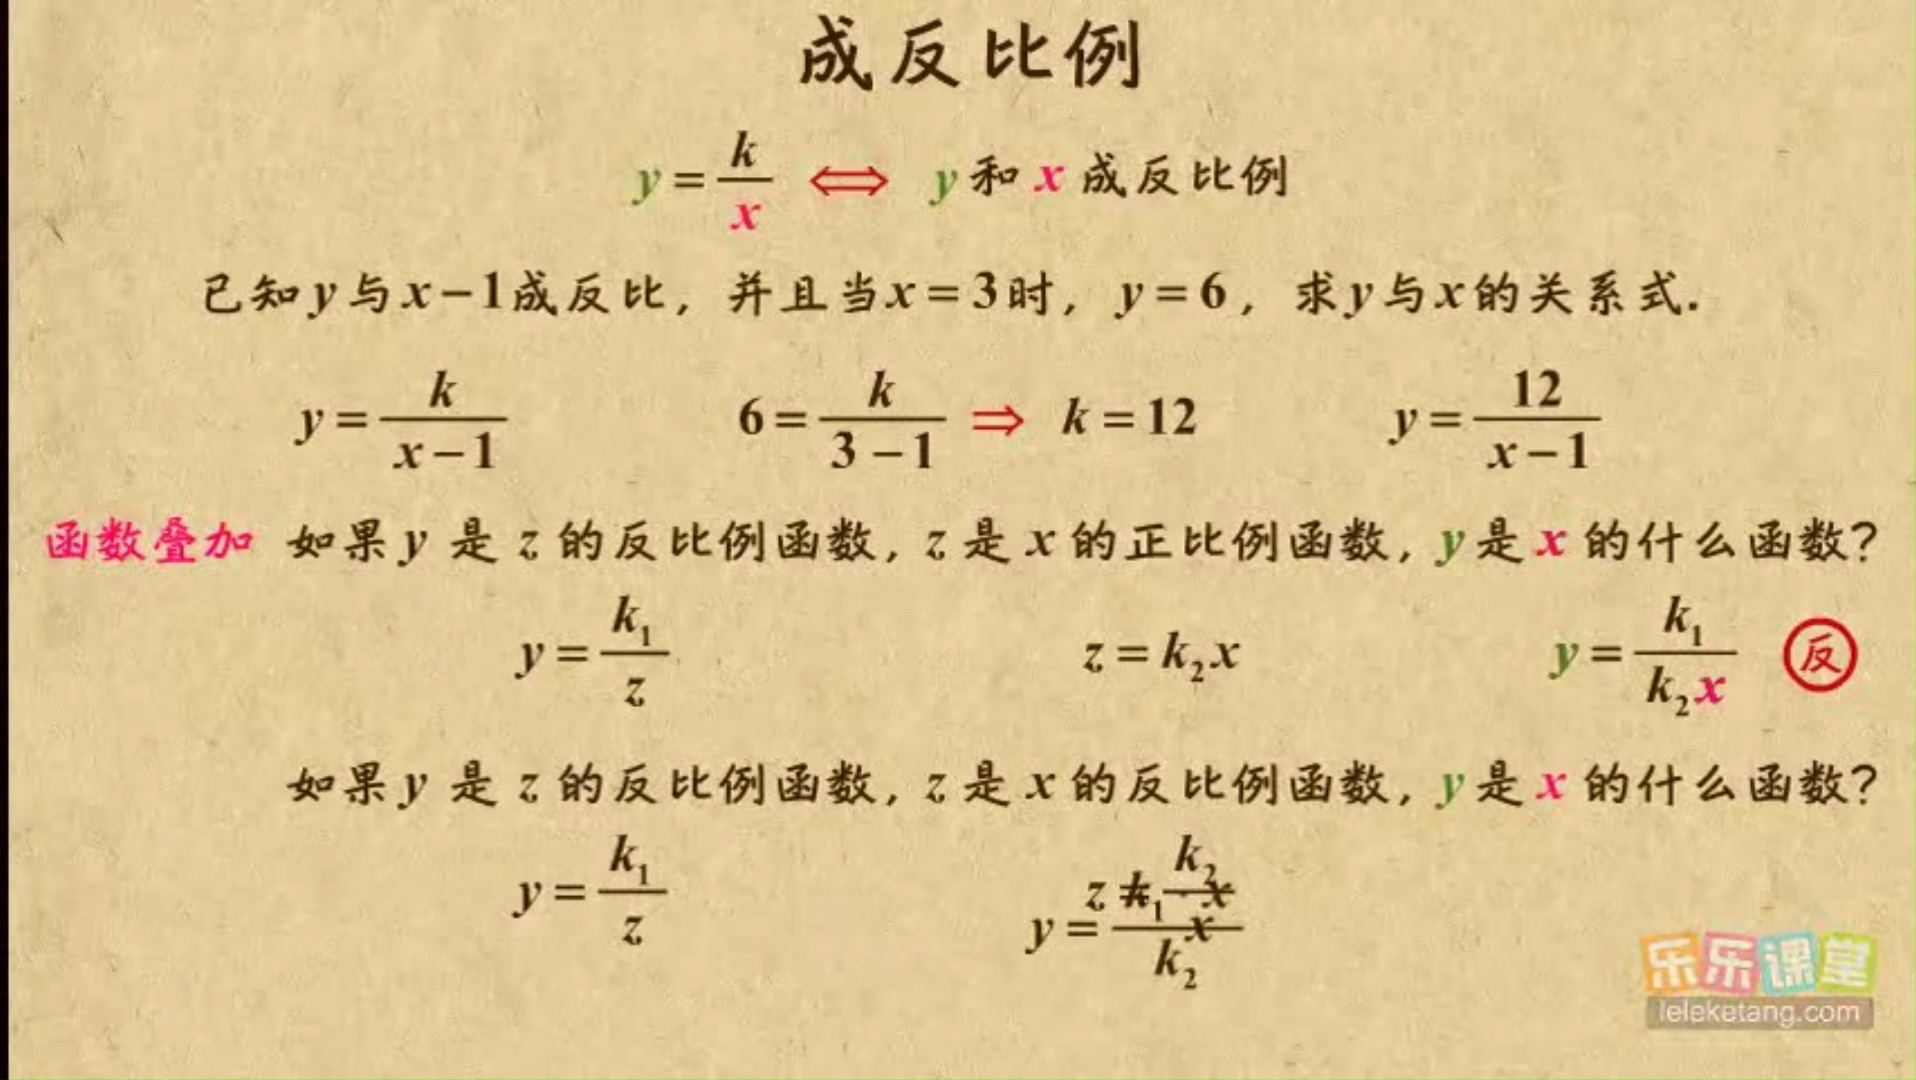 成反比例
y = k/x ⇔ y 和 x 成反比例
已知y与x-1成反比，并且当x=3时，y=6，求y与x的关系式.
y = k/(x-1) 6 = k/(3-1) ⇒ k=12 y = 12/(x-1)
函数叠加 如果y是z的反比例函数，z是x的正比例函数，y是x的什么函数？
y = k₁/z z = k₂x y = k₁/(k₂x) 反
如果y是z的反比例函数，z是x的反比例函数，y是x的什么函数？
y = k₁/z z = k₂/x
y = k₁·x/k₂
乐乐课堂
leleketang.com